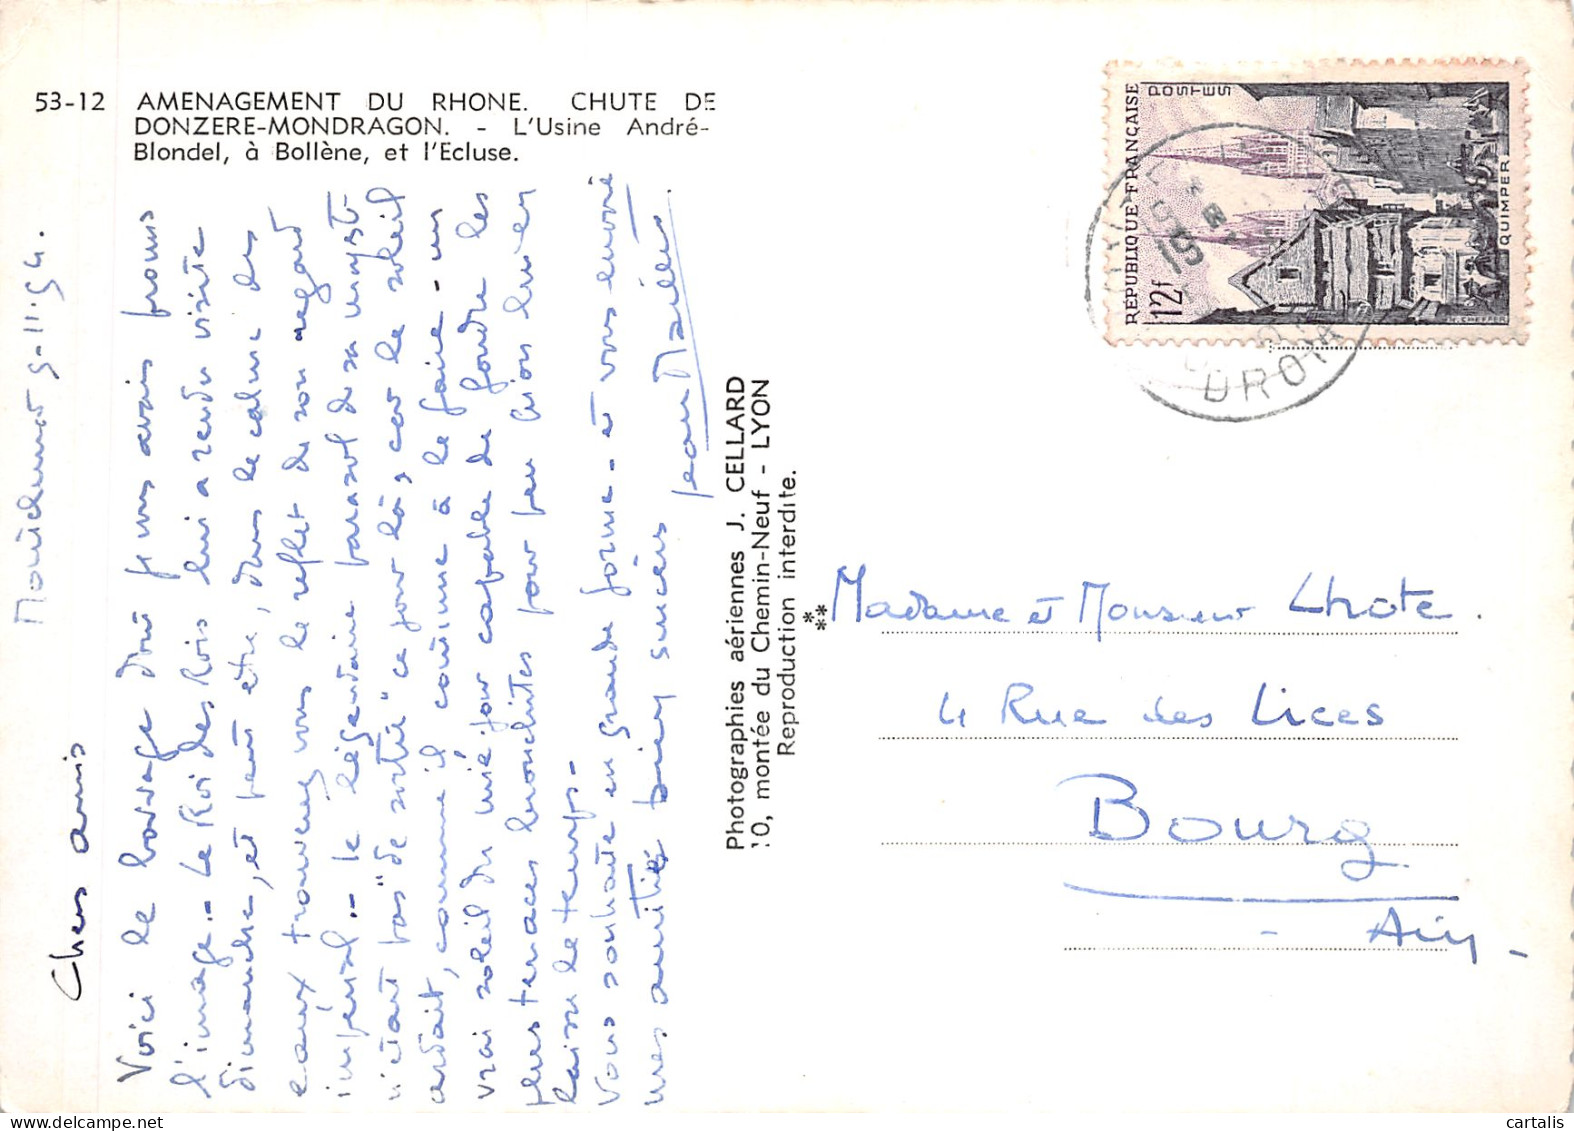 53-12 AMENAGEMENT DU RHONE. CHUTE DE
DONZERE-MONDRAGON. - L'Usine André-
Blondel, à Bollène, et l'Ecluse.
Chers amis
Voici le barrage dont je vous avais promis
l'image.- Le Roi des Rois lui a rendu visite
dimanche, et peut être, dans le calme des
eaux trouverez vous le reflet de son regard
impérial.- le légendaire parasol de sa majesté
n'était pas "de sortie" ce jour là, car le soleil
ardait, comme il, à le faire - un
vrai soleil du midi, capable de fondre les
plus tenaces pour peu qu'on lui en
laisse le temps.-
Vous souhaite en grande forme - et vous envoie
mes amitiés bien sincères
Photographies aériennes J. CELLARD
10, montée du Chemin-Neuf - LYON
Reproduction interdite.
RÉPUBLIQUE FRANÇAISE
POSTES
12f
QUIMPER
H. CHEFFER
19
DROME
Madame et Monsieur Lhote.
4 Rue des Lices
Bourg
- Ain -